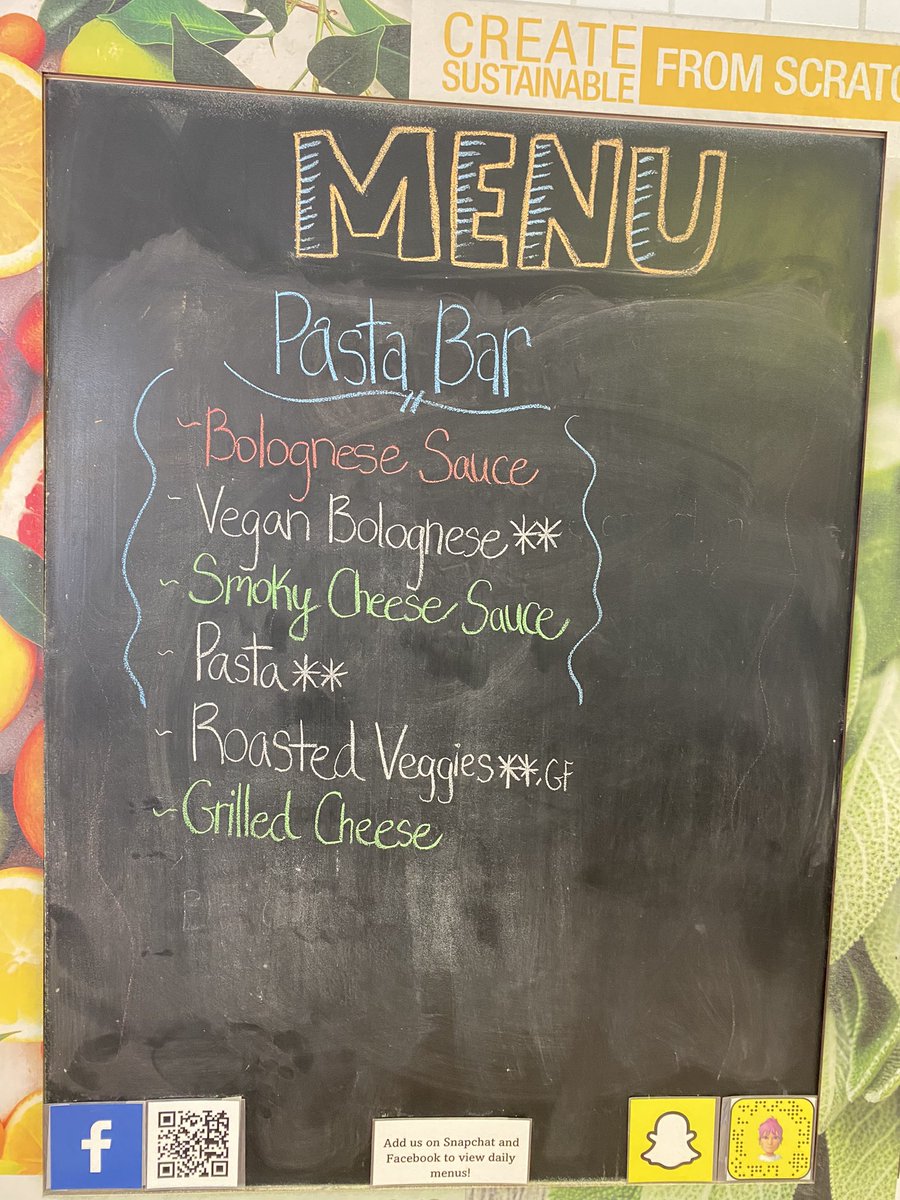 CREATE
SUSTAINABLE
FROM SCRATC
MENU
Pasta Bar
~Bolognese Sauce
~Vegan Bolognese**
~Smoky Cheese Sauce
~Pasta**
~Roasted Veggies**, GF
~Grilled Cheese
Add us on Snapchat and
Facebook to view daily
menus!